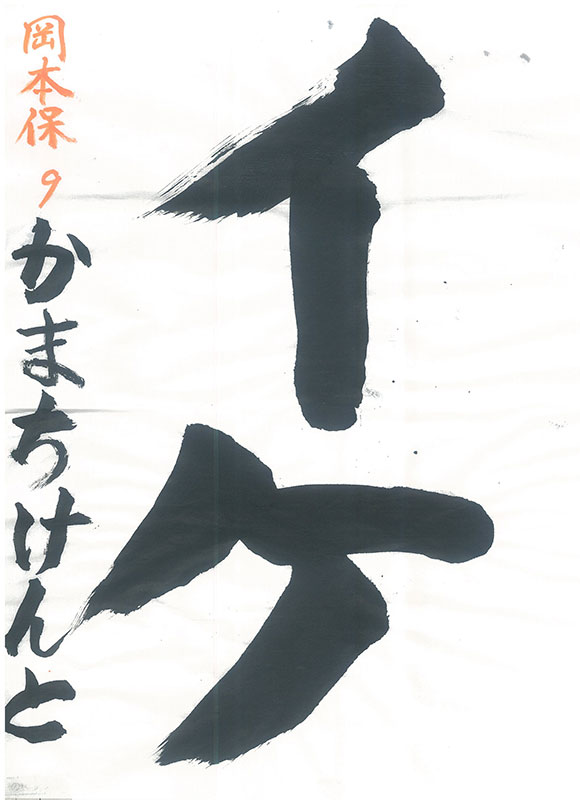 イケ
岡本保 9
かまちけんと